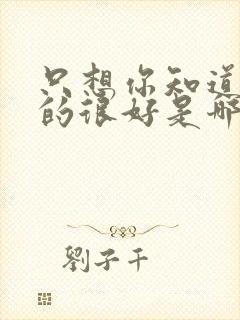 只想你知道
的很好是那
劉子千